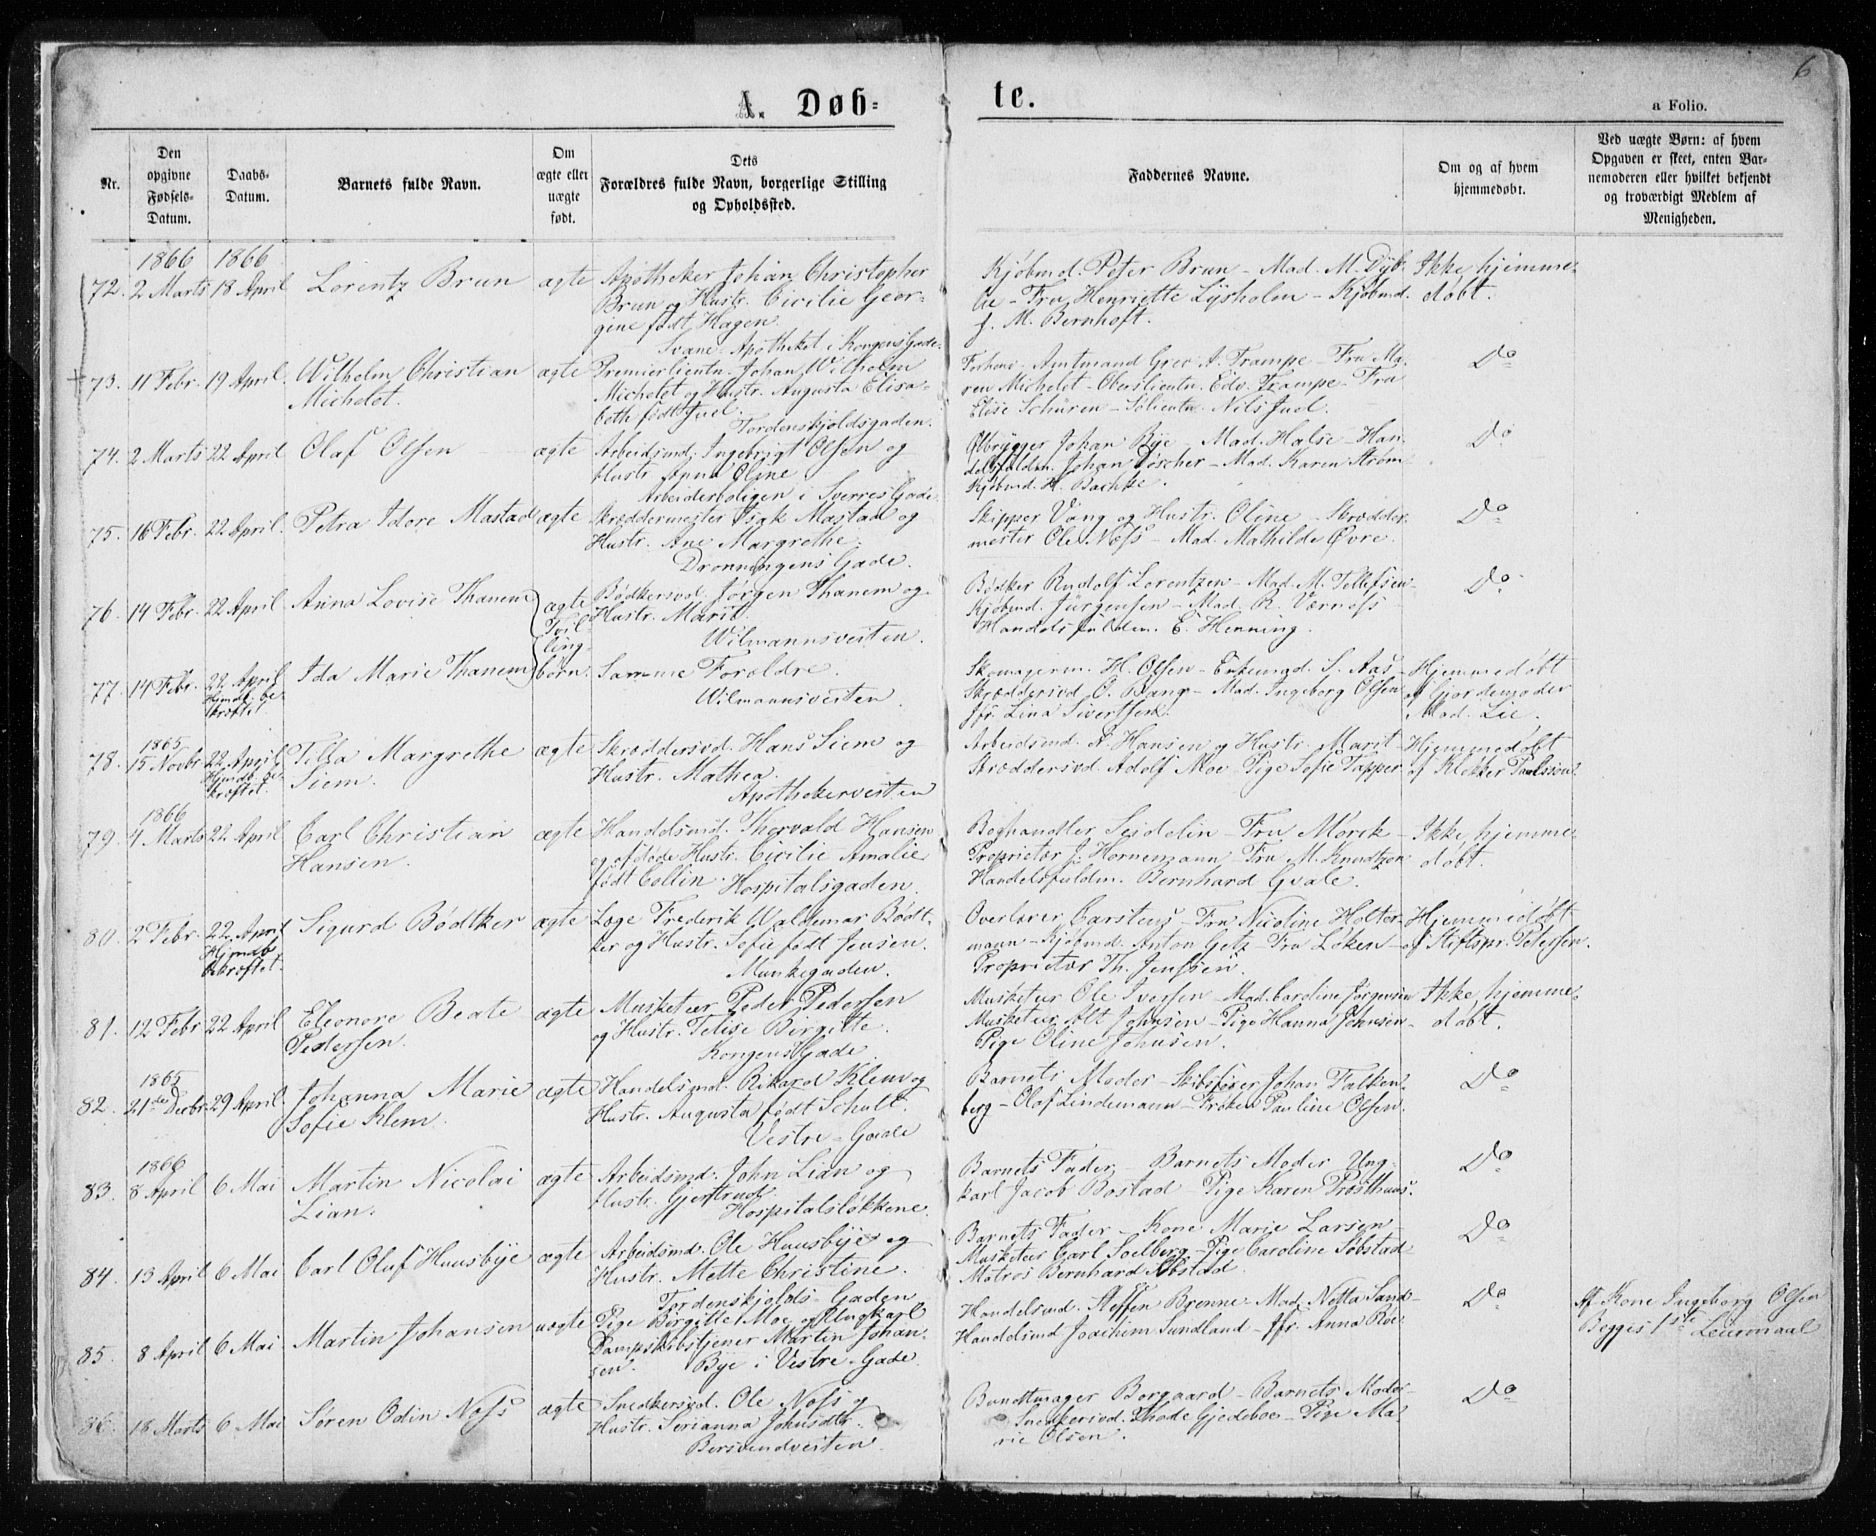 6
A. Døb-
te.
a Folio.
Nr.
Den opgivne Fødsels-Datum.
Daabs-Datum.
Barnets fulde Navn.
Om ægte eller uægte født.
Dets Forældres fulde Navn, borgerlige Stilling og Opholdssted.
Faddernes Navne.
Om og af hvem hjemmedøbt.
Ved uægte Børn: af hvem Opgaven er skeet, enten Barnemoderen eller hvilket bekjendt og troværdigt Medlem af Menigheden.
1866 1866
72. 2 Marts 18 April Lorentz Brun ægte Apotheker Johan Christopher
Brun og Hustr. Cicilie Geor-
gine født Hagen.
Svane-Apotheket i Kongens Gade.
Kjøbmd. Peter Brun - Mad. M. Dyb-
- Fru Henriette Lysholm - Kjøbmd.
J. M. Bernhoft.
Ikke hjemme-
døbt.
73. 11 Febr. 19 April. Wilhelm Christian
Michelet.
ægte Premierlieutn. Johan Wilhelm
Michelet og Hustr. Augusta Elisa-
beth født Juel.
Tordenskjoldsgaden.
Forhenv. Amtmand Grev A. Trampe - Fru Ma-
ren Michelet - Oberstlieutn. Edv. Trampe - Fru
Elise Schüren - Sølieutn. Nils Juel.
Do
74. 2 Marts 22 April Olaf Olsen ægte Arbeidsmd. Ingebrigt Olsen og
Hustr. Anne Oline
Arbeiderboligen i Sverres Gade
Ølbrygger Johan Bye - Mad. Halse - Han-
delsfuldm. Johan Løscher - Mad. Karen Strøm
Kjøbmd. H. Bachke.
Do
75. 16 Febr. 22 April. Petra Idore Mastad ægte Skræddermester Isak Mastad og
Hustr. Ane Margrethe.
Dronningens Gade.
Skipper Vang og Hustr. Oline - Skrædder-
mester Ole Næss - Mad. Mathilde Øvre.
Do
76. 14 Febr. 22 April Anna Lovise Thanem ægte
Tvil-
ling-
Bødkersvd. Jørgen Thanem og
Hustr. Marit.
Wilmannsveiten.
Bødker Rudolf Lorentzen - Mad. M. Tellefsen -
Kjøbmd. Jürgensen - Mad. R. Værnæss -
Handelsfuldm. E. Henning.
Do
77. 14 Febr. 22 April
Hjmdb. be-
kræftet.
Ida Marie Thanem børn. Samme Forældre.
Wilmannsveiten.
Skomagerm. H. Olsen - Enkemd. S. Aas -
Skræddersvd. O. Bang - Mad. Ingeborg Olsen
Jfr. Lina Sivertsen.
Hjemmedøbt
af Gjordemoder
Mad. Lie.
1865
78. 15 Novbr. 22 April
Hjmdb. be-
kræftet.
Tilla Margrethe
Siem.
ægte Skræddersvd. Hans Siem og
Hustr. Mathea.
Apothekerveiten
Arbeidsmd. N. Hansen og Hustr. Marit -
Skræddersvd. Adolf Moe - Pige Sofie Tapper
Hjemmedøbt
af Klokker Paulsson.
1866
79. 4 Marts 22 April Carl Christian
Hansen.
ægte Handelsmd. Thorvald Hansen
og afdøde Hustr. Cicilie Amalie
født Collin. Hospitalsgaden.
Boghandler Seidelin - Fru Mørck -
Proprietær J. Hornemann - Fru M. Knudtzon
Handelsfuldm. Bernhard Qvale.
Ikke hjemme-
døbt.
80. 2 Febr. 22 April
Hjmdb.
bekræftet.
Sigurd Bødtker ægte Læge Frederik Waldemar Bødt-
ker og Hustr. Sofie født Jensen.
Munkegaden.
Overlærer Carstens - Fru Nicoline Holter-
mann - Kjøbmd. Anton Getz - Fru Løken -
Proprietær Th. Jenssen.
Hjemmedøbt
af Stiftspr. Petersen.
81. 12 Febr 22 April Eleonore Beate
Pedersen.
ægte Musketeer Peder Pedersen
og Hustr. Telise Birgitte.
Kongens Gade.
Musketeer Ole Iversen - Mad. Caroline Jørgensen
Musketeer Alt Johnsen - Pige Hanna Johnsen -
Pige Oline Johnsen.
Ikke hjemme-
døbt.
1865
82. 21de Decbr. 29 April. Johanna Marie
Sofie Klem.
ægte Handelsmd. Rikard Klem og
Hustr. Augusta født Schult.
Vestre-Gade
Barnets Moder - Skibsfører Johan Falken-
berg - Olaf Lindemann - Frøken Pauline Olsen.
Do
1866
83. 8 April 6 Mai Martin Nicolai
Lian.
ægte Arbeidsmd. John Lian og
Hustr. Gjertrud
Hospitalsløkkene.
Barnets Fader - Barnets Moder Ung-
karl Jacob Bostad - Pige Karen Præsthuus.
Do
84. 13 April 6 Mai Carl Oluf Huusbye ægte Arbeidsmd. Ole Huusbye og
Hustr. Mette Christine.
Tordenskjolds-Gaden
Barnets Fader - Kone Marie Larsen -
Musketeer Carl Soelberg - Pige Caroline Søbstad
Matros Bernhard Søbstad.
Do
85. 8 April 6 Mai Martin Johansen uægte Pige Birgitte Moe og Ungkarl
Dampskibstjener Martin Johan-
sen. Bye i Vestre-Gade.
Handelsmd. Steffen Brenne - Mad. Netta Sand-
Handelsmd Joachim Sundland - Jfr. Anna Roe
Do
Af Kone Ingeborg Olsen
Begges 1ste Leiermaal
86. 18 Marts 6 Mai Søren Odin Næss ægte Snedkersvd. Ole Næss og
Hustr. Serianna Johnsdtr.
Bersvendveiten.
Bundtmager Borgaard - Barnets Moder -
Snedkersvd. Thode Gjedeboe - Pige Ma-
rie Olsen.
Do